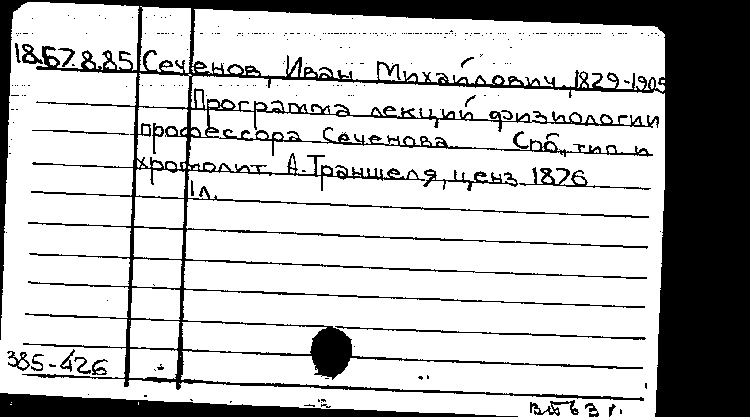 18.67.8.85 Сеченов, Иван Михайлович, 1829-1905
Программа лекций физиологии
профессора Сеченова. Спб., тип. и
хромолит. А. Траншеля, ценз. 1876
1 л.
385-426